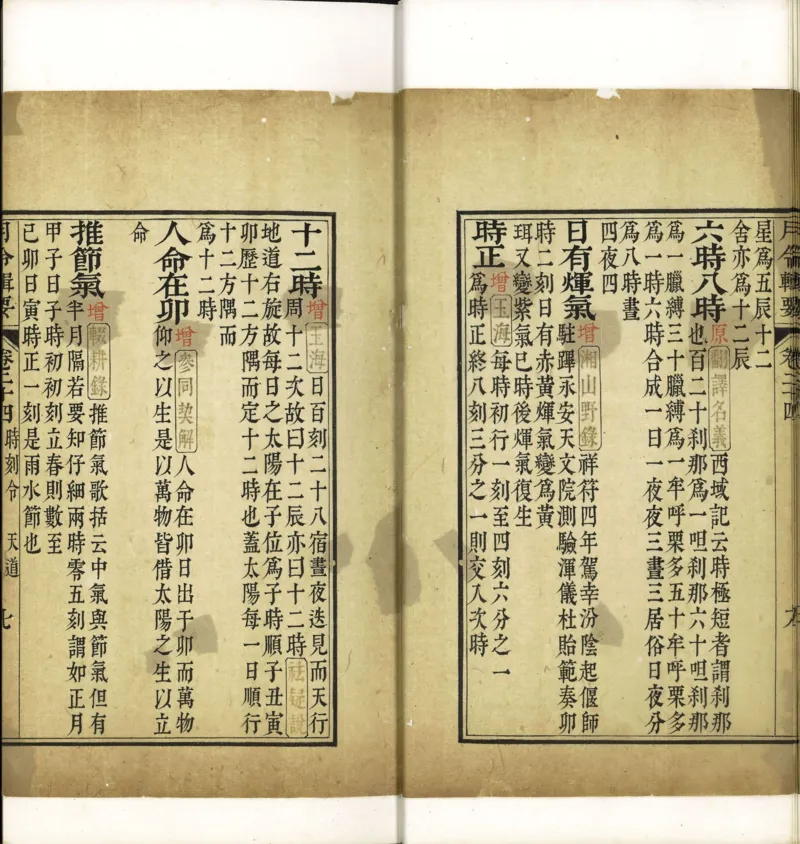 月令輯要 卷二十四
星爲五辰十二
舍亦爲十二辰
六時八時 原 翻譯名義 西域記云時極短者謂刹那
也百二十刹那爲一呾刹那六十呾刹那
爲一臘縛三十臘縛爲一牟呼栗多五十牟呼栗多
爲一時六時合成一日一夜夜三晝三居俗日夜分
爲八時晝
四夜四
日有煇氣 增 湘山野錄 祥符四年駕幸汾陰起偃師
駐蹕永安天文院測驗渾儀杜貽範奏卯
時二刻日有赤黃煇氣變爲黃
珥又變紫氣巳時後煇氣復生
時正 增 玉海 每時初行一刻至四刻六分之一
爲時正終八刻三分之一則交入次時
十二時 增 玉海 日百刻二十八宿晝夜迭見而天行
周十二次故曰十二辰亦曰十二時 祛疑說
地道右旋故每日之太陽在子位爲子時順子丑寅
卯歷十二方隅而定十二時也蓋太陽每一日順行
十二方隅而
爲十二時
人命在卯 增 參同契解 人命在卯日出于卯而萬物
仰之以生是以萬物皆借太陽之生以立
命
推節氣 增 輟耕錄 推節氣歌括云中氣與節氣但有
半月隔若要知仔細兩時零五刻謂如正月
甲子日子時初初刻立春則數至
己卯日寅時正一刻是雨水節也
月令輯要 卷二十四 時刻令 天道 七